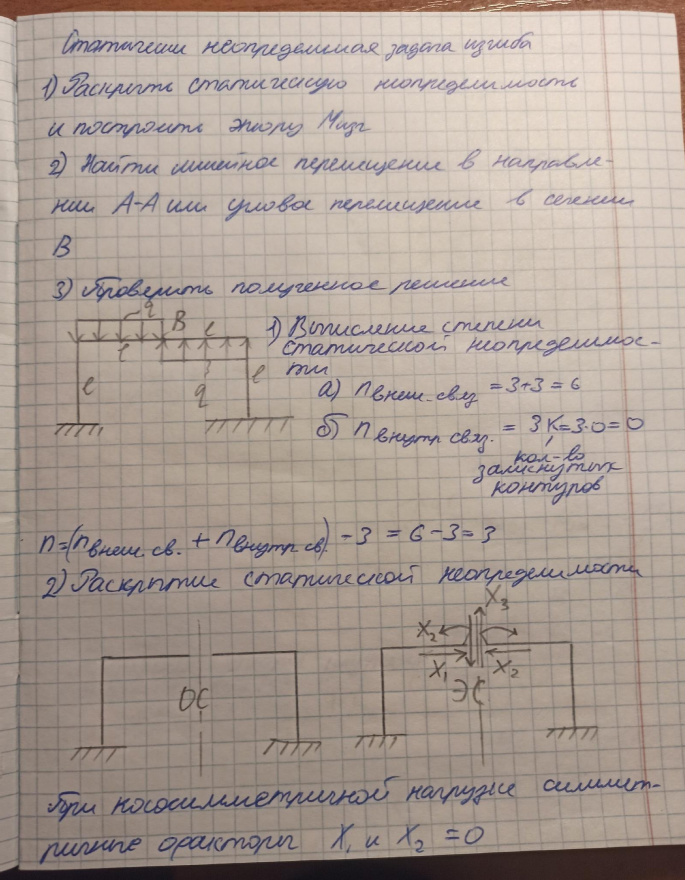 Статически неопределимая задача изгиба
1) Раскрыть статическую неопределимость
и построить эпюру Mизг
2) Найти линейное перемещение в направле-
нии А-А или угловое перемещение в сечении
В
3) Проверить полученное решение
q
B
l
l
l
l
q
1) Вычисление степени
статической неопределимос-
ти
а) n внеш. связ = 3+3 = 6
б) n внутр связ. = 3K = 3·0 = 0
кол-во
замкнутых
контуров
n = (n внеш. св. + n внутр св.) - 3 = 6 - 3 = 3
2) Раскрытие статической неопределимости
ОС
X₃
X₂
X₁
X₂
ЭС
При кососимметричной нагрузке симмет-
ричные факторы X₁ и X₂ = 0